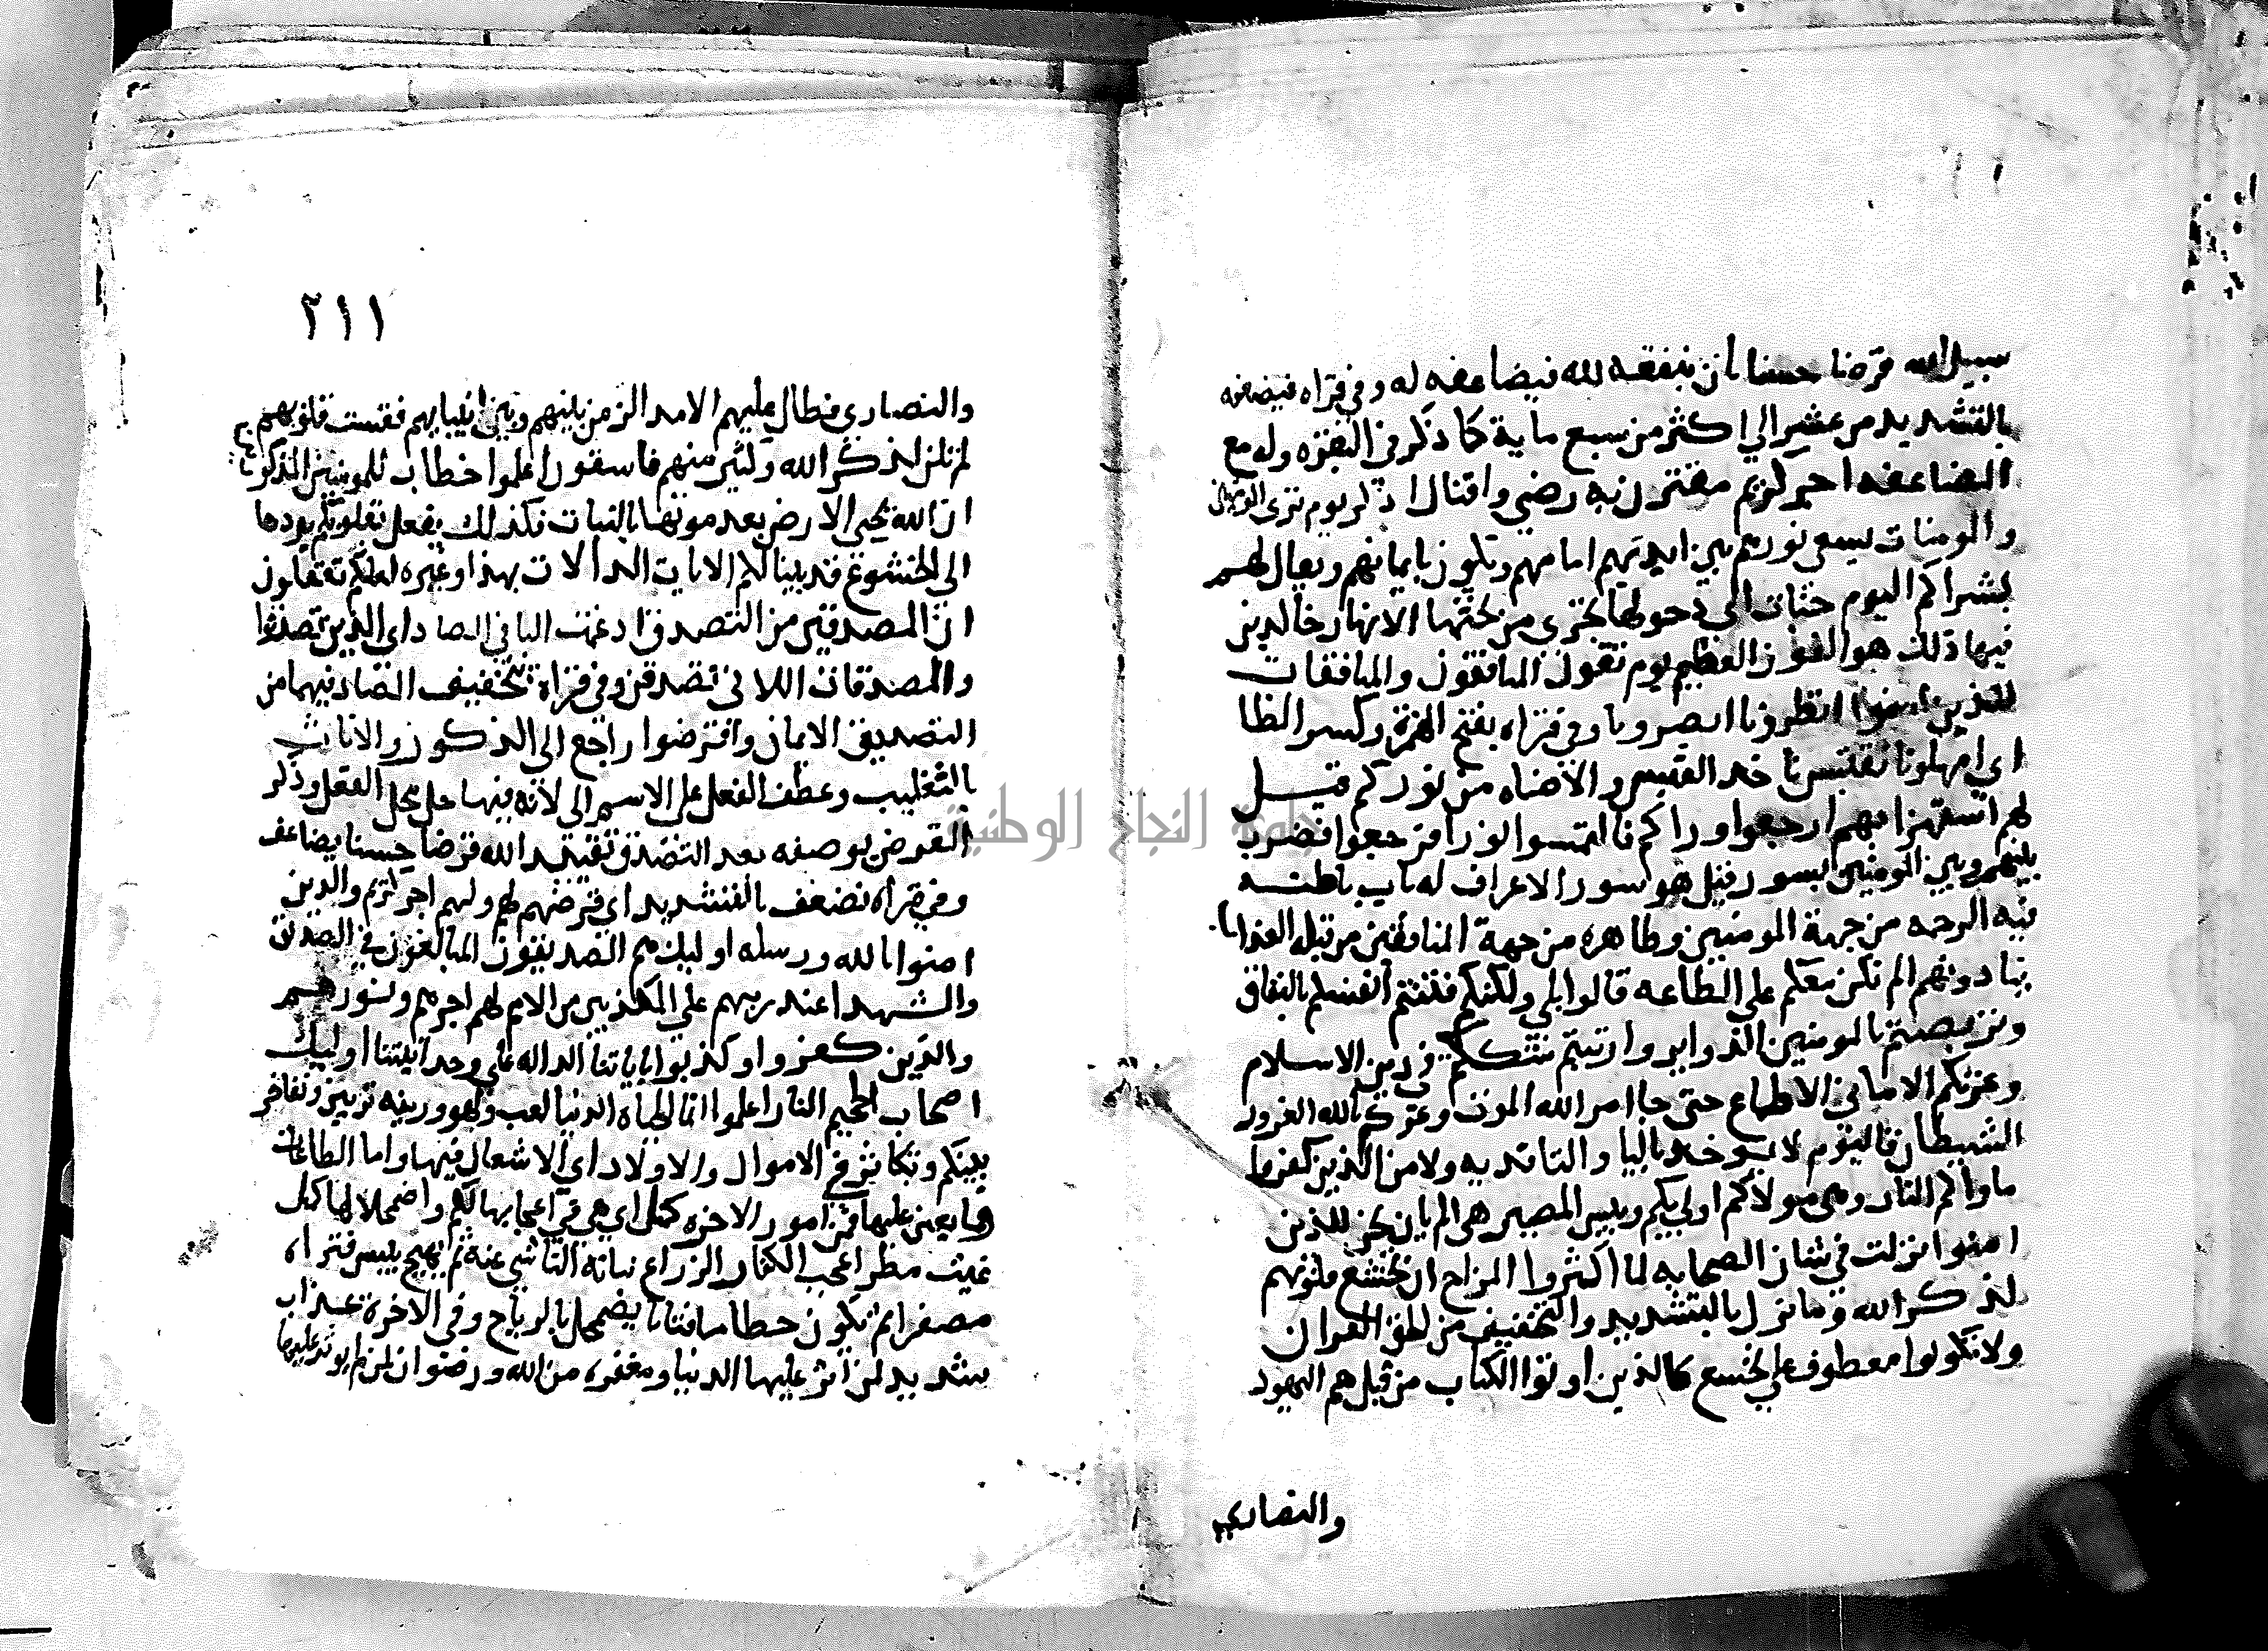 سبيل الله قرضا حسنا بان ينفقه لله فيضاعفه له وفي قراه فيضعفه
بالتشديد من عشر الي اكثر من سبع ماية كما ذكر في البقره وله مع
المضاعفه اجر كريم مقترن به رضي واقبال اذكر يوم تري المومنين
والمومنات يسعي نورهم بين ايديهم امامهم ويكون بايمانهم ويقال لهم
بشراكم اليوم جنات اي دخولها تجري من تحتها الانهار خالدين
فيها ذلك هو الفوز العظيم يوم يقول المنافقون والمنافقات
للذين امنوا انظرونا ابصرونا وفي قراه بفتح الهمزة وكسر الظا
اي امهلونا نقتبس ناخد القبس والاضاه من نوركم قيل
لهم استهزا بهم ارجعوا وراكم فالتمسوا نورا فرجعوا فضرب
بينهم وبين المومنين بسور قيل هو سور الاعراف له باب باطنه
فيه الرحمه من جهة المومنين وظاهره من جهة المنافقين من قبله العذاب
ينادونهم الم نكن معكم علي الطاعه قالوا بلي ولكنكم فتنتم انفسكم بالنفاق
وتربصتم بالمومنين الدواير وارتبتم شككتم في دين الاسلام
وغرتكم الاماني الاطماع حتي جا امر الله الموت وغركم بالله الغرور
الشيطان فاليوم لا يوخد باليا والتا فديه ولا من الذين كفروا
ماواكم النار وهي مولاكم اولي بكم وبيس المصير هي الم يان يحن للذين
امنوا نزلت في شان الصحابه لما اكثروا المزاح ان تخشع قلوبهم
لذكر الله وما نزل بالتشديد والتخفيف من الحق القران
ولا يكونوا معطوف علي تخشع كالذين اوتوا الكتاب من قبل هم اليهود
والنصاري
٢١١
والنصاري فطال عليهم الامد الزمن بينهم وبين انبيايهم فقست قلوبهم
لم تلن لذكر الله وكثير منهم فاسقون اعلموا خطاب للمومنين المذكورين
ان الله يحيي الارض بعد موتها بالنبات فكذلك يفعل بقلوبكم يردها
الي الخشوع قد بينا لكم الايات الدالات بهذا وغيره لعلكم تعقلون
ان المصدقين من التصدق ادغمت التا في الصاد اي الذين تصدقوا
والمصدقات اللاتي تصدقن وفي قراة بتخفيف الصاد فيهما من
التصديق الايمان واقرضوا راجع الي الذكور والاناث
بالتغليب وعطف الفعل علي الاسم الي لانه فيها حل محل الفعل وذكر
القرض بوصفه بعد التصدق تقييد الله قرضا حسنا يضاعف
وفي قراه تضعف بالتشديد اي قرضهم لهم ولهم اجر كريم والدين
امنوا بالله ورسله اوليك هم الصديقون المبالغون في الصدق
والشهدا عند ربهم علي المكذبين من الامم لهم اجرهم ونورهم
والذين كفروا وكذبوا باياتنا الداله علي وحدانيتنا اوليك
اصحاب الجحيم النار اعلموا انما الحياه الدنيا لعب ولهو وزينه تزيين وتفاخر
بينكم وتكاثر في الاموال والاولاد اي الاشعال فيها واما الطاعات
وما يعين عليها فمن امور الاخره كمثل اي هي في اعجابها لكم واضمحلالها كمثل
غيث مطر اعجب الكفار الزراع نباته الناشي عنه ثم يهيج ييبس فتراه
مصفرا ثم يكون حطاما فتاتا يضمحل بالرياح وفي الاخرة عذاب
شديد لمن اثر عليها الدنيا ومغفره من الله ورضوان لمن لم يوثر عليها
جامعة النجاح الوطنية